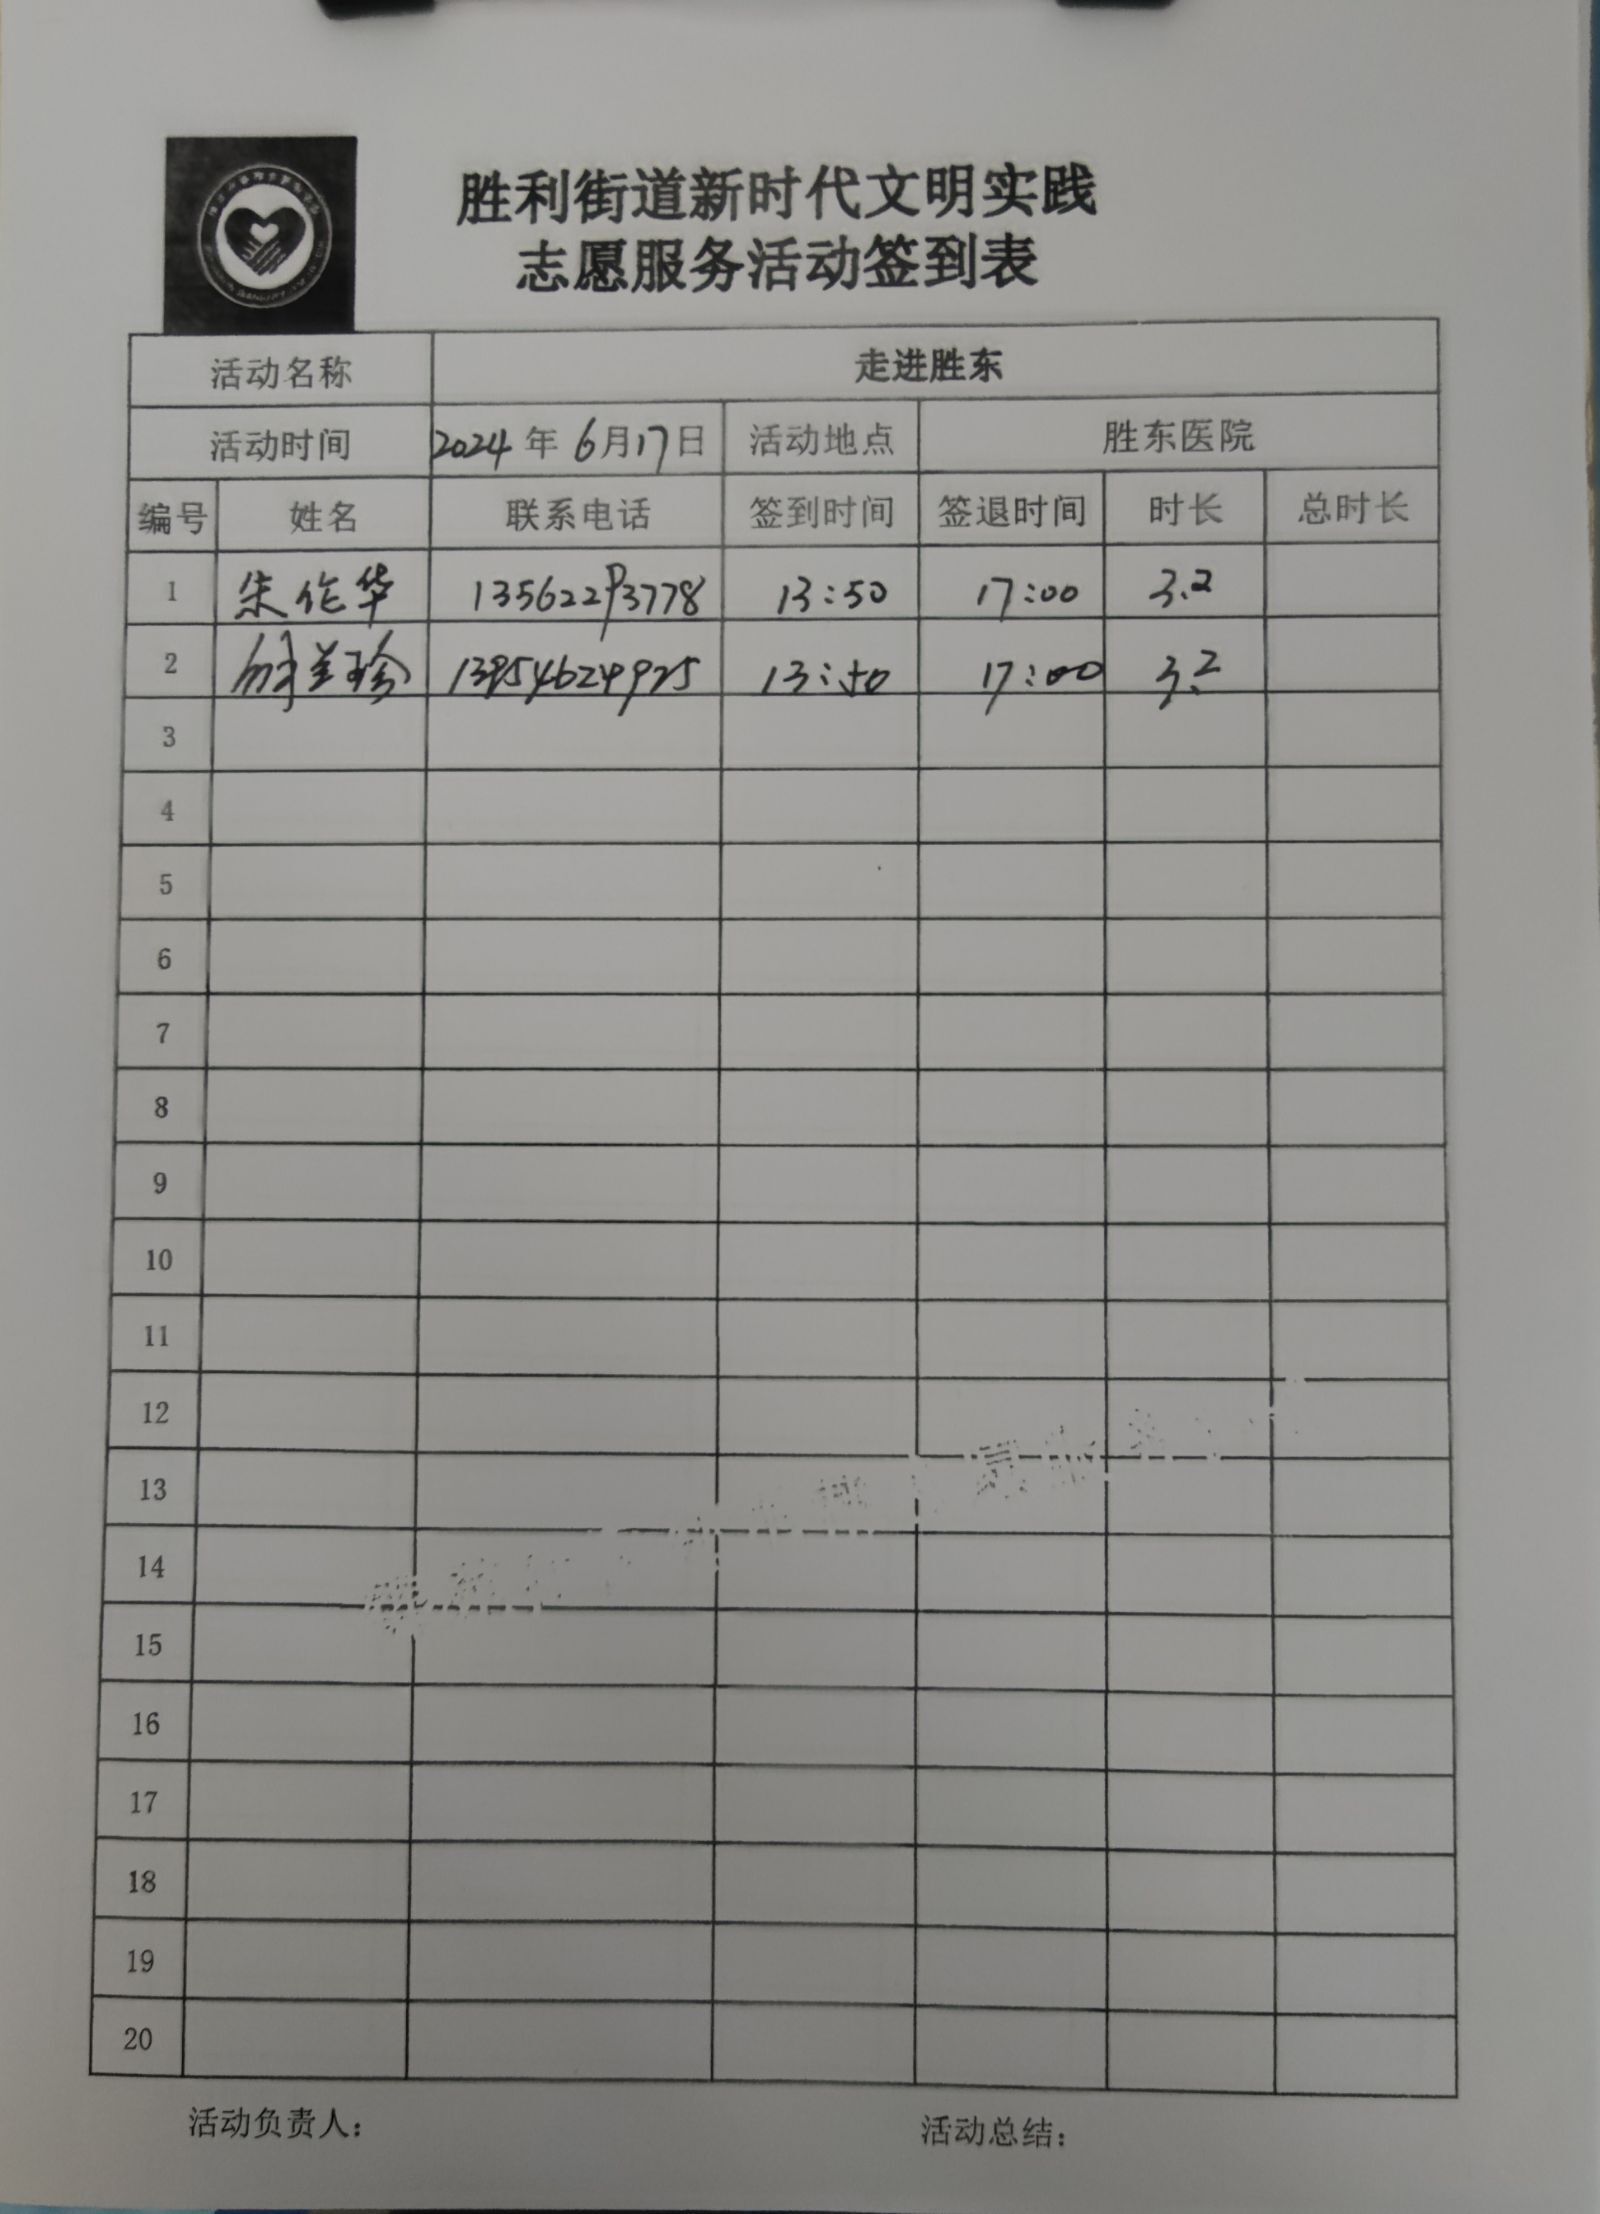 胜利街道新时代文明实践
志愿服务活动签到表
活动名称 走进胜东
活动时间 2024年6月17日 活动地点 胜东医院
编号 姓名 联系电话 签到时间 签退时间 时长 总时长
1 朱作华 13562293778 13:50 17:00 3.2
2 兰珍 13954624925 13:50 17:00 3.2
3
4
5
6
7
8
9
10
11
12
13
14
15
16
17
18
19
20
活动负责人： 活动总结：